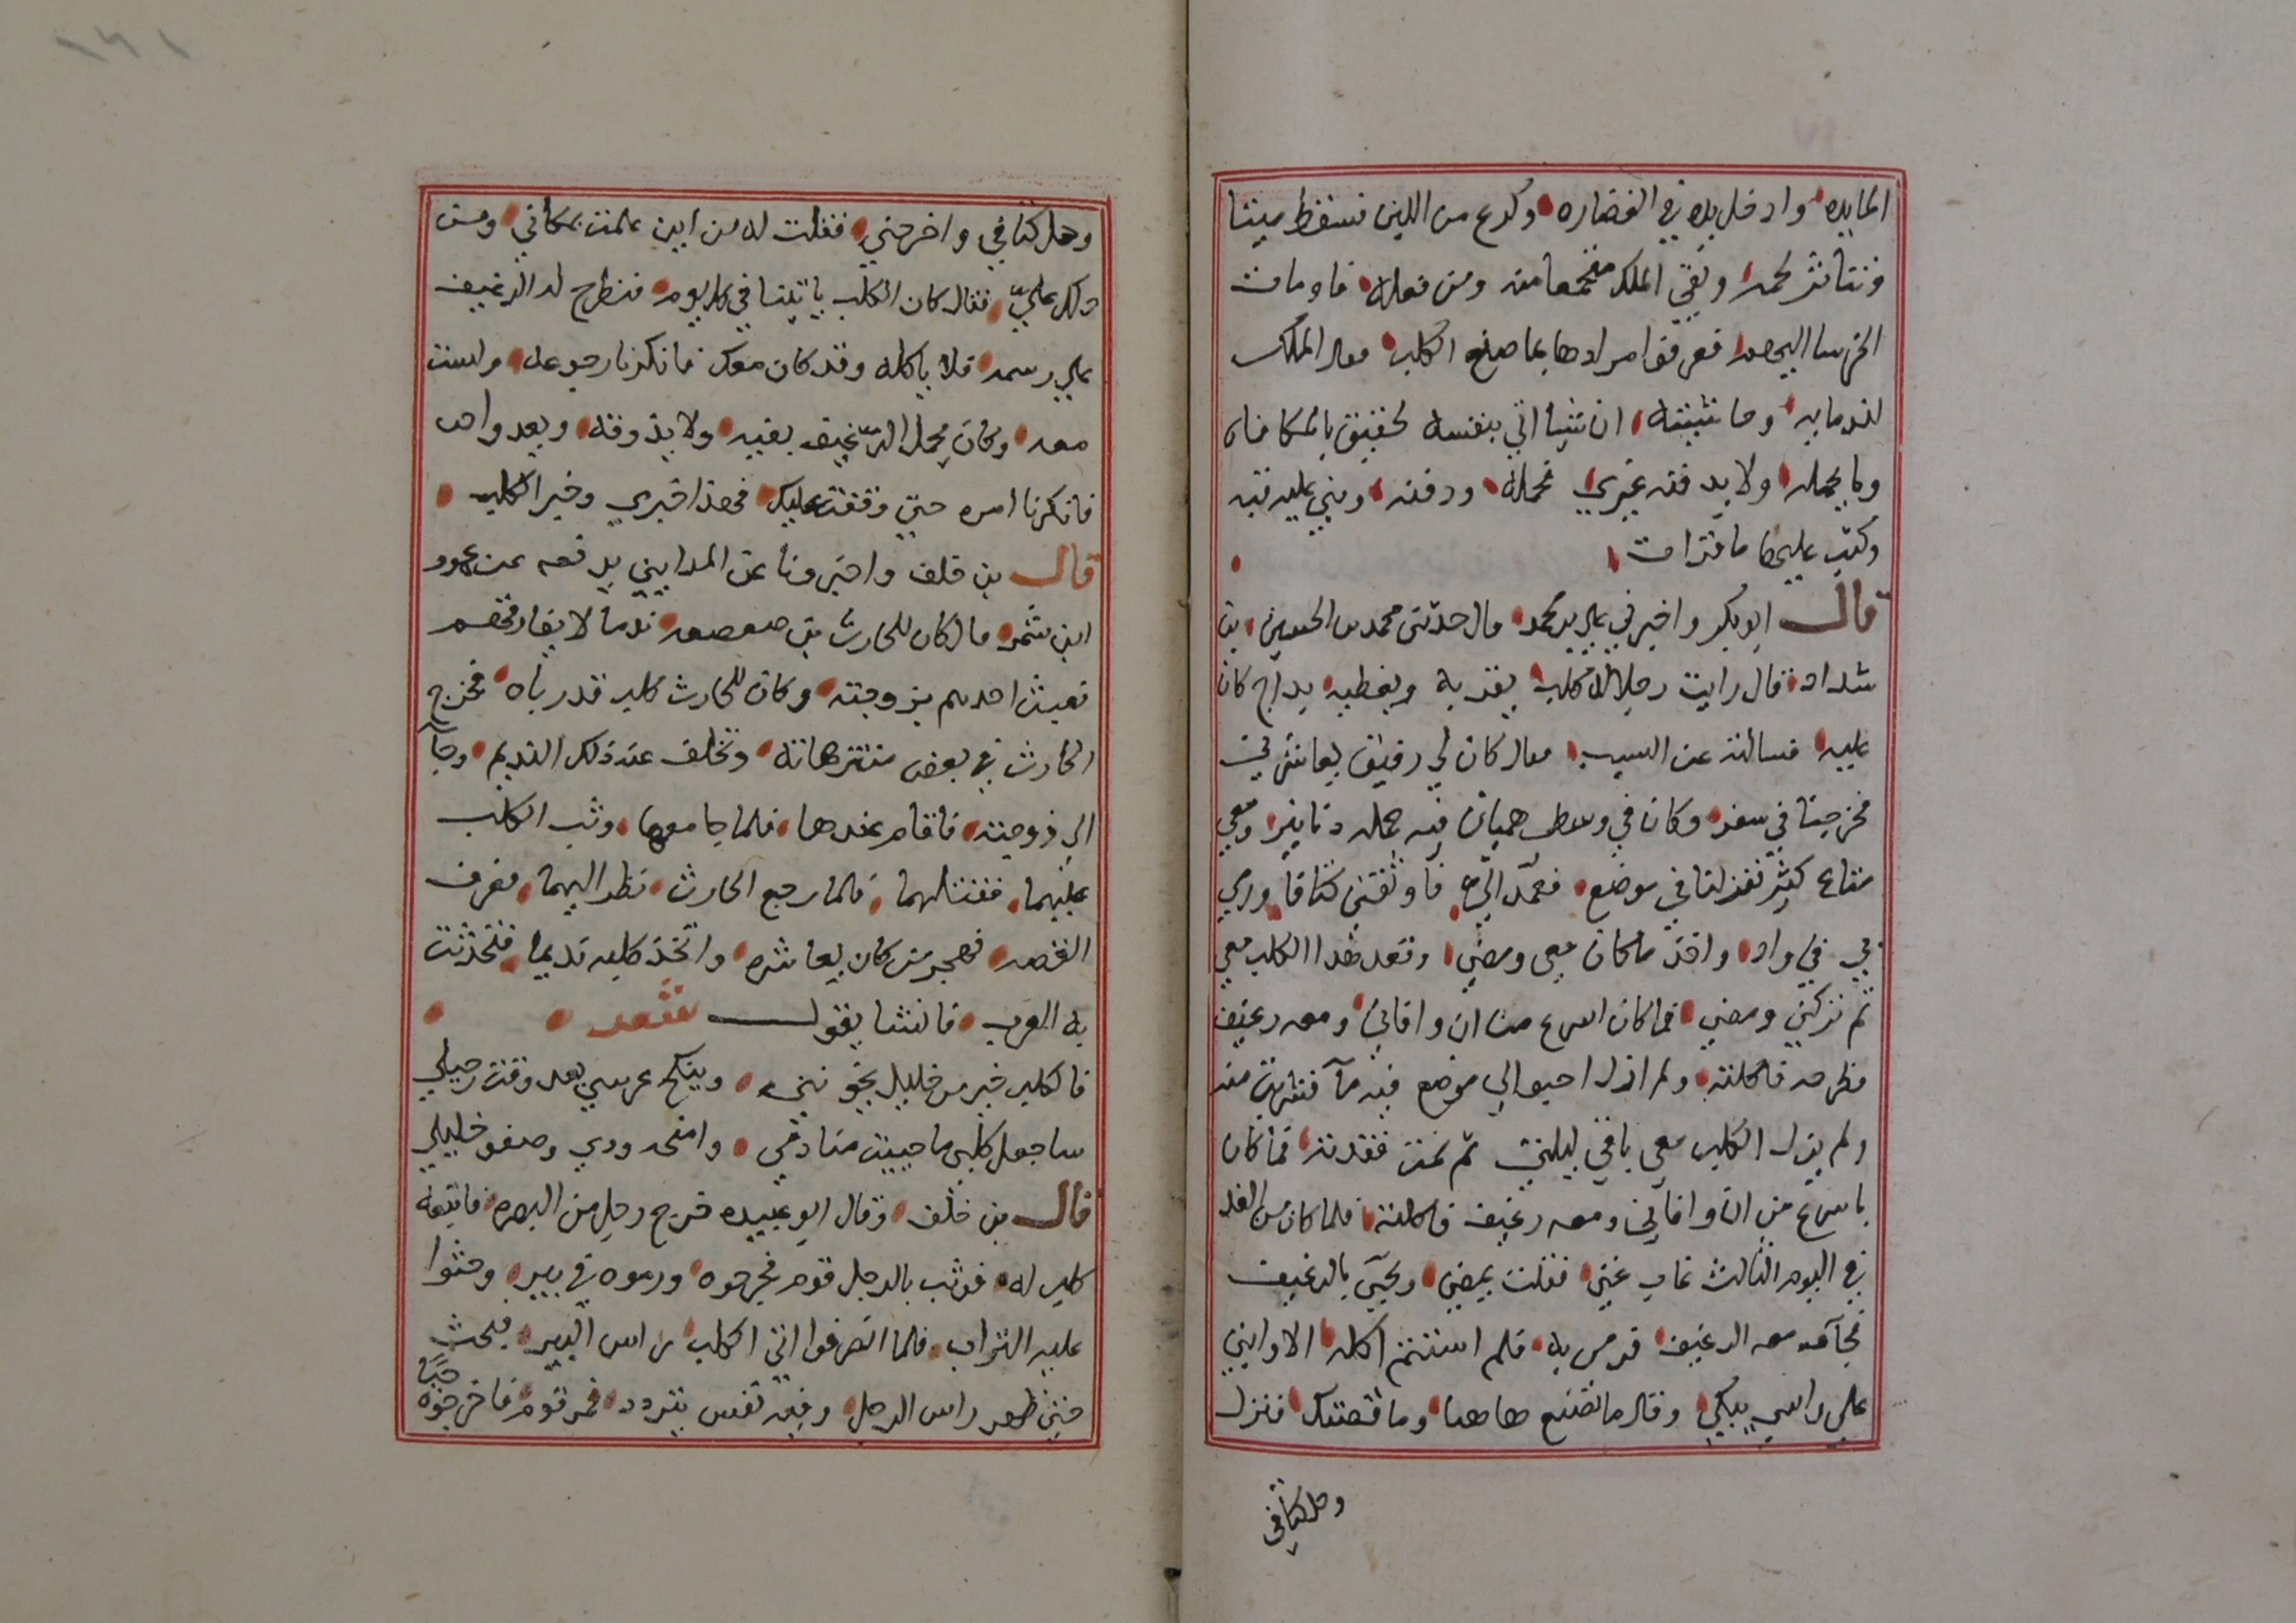 المايده وادخل يده في الغضاره وكرع من اللبن فسقط ميتا
وتناثر لحمه وبقي الملك متعجبا منه ومن فعله فاومات
الخرسا اليهم فعرفوا مرادها بما صنع الكلب فقال الملك
لندمايه وحاشيته ان شيا اتي بنفسه لحقيق بالمكافاه
وما يحمله ولا يدفنه غيري فحمله ودفنه وبني عليه قبه
وكتب عليها ما قرات
قال ابو بكر واخبرني علي بن محمد قال حدثني محمد بن الحسين بن
شداد قال رايت رجلا له كلب يقربه ويغطيه بدواج كان
عليه فسالته عن السبب فقال كان لي رفيق يعاشرني
فخرجنا في سفر وكان في وسطي هميان فيه جمله دنانير ومعي
متاع كثير فنزلنا في موضع فعمد الي فاوثقني كتافا ورمي
بي في واد واخذ ما كان معي ومضي وقعد هذا الكلب معي
ثم تركني ومضي فما كان اسرع من ان وافاني ومعه رغيف
فطرحه فاكلته ولم ازل احبوا الي موضع فيه مآ فشربت منه
ولم يزل الكلب معي باقي ليلتي ثم نمت ففقدته فما كان
باسرع من ان وافاني ومعه رغيف فاكلته فلما كان من الغد
في اليوم الثالث غاب عني فقلت يمضي ويجيئ بالرغيف
فجآ ومعه الرغيف فرمي به فلم استتم اكله الا وابني
علي راسي يبكي وقال ما تصنع هاهنا وما قصتك فنزل
وحل كتافي
وحل كتافي واخرجني فقلت له من اين علمت بمكاني ومن
دلك علي فقال كان الكلب ياتينا في كل يوم فنطرح له الرغيف
علي رسمه فلا ياكله وقد كان معك فانكرنا رجوعه ولست
معه وكان يحمل الرغيف بفيه ولا يذوقه ويعدوا حتي
فانكرنا امره حتي وقفت عليك فهذا خبري وخبر الكلب
قال بن خلف واخبرونا عن المدايني يرفعه عن عمرو
ابن شمر قال كان للحارث بن صعصعه ندما لا يفارقهم
فعبث احدهم بزوجته وكان للحارث كلب قد رباه فخرج
الحارث في بعض منتزهاته وتخلف عنه ذلك النديم وجآ
الي زوجته فاقام عندها فلما جامعها وثب الكلب
عليهما فقتلهما فلما رجع الحارث نظر اليهما فعرف
القصه فهجر من كان يعاشره واتخذ كلبه نديما فتحدثت
به العرب فانشا يقول شعر
فالكلب خير من خليل يخونني وينكح عرسي بعد وقت رحيلي
ساجعل كلبي ما حييت منادمي وامنحه ودي وصفو خليلي
قال بن خلف وقال ابو عبيده خرج رجل من البصره فاتبعه
كلب له فوثب بالرجل قوم فجرحوه ورموه في بير وحثوا
عليه التراب فلما انصرفوا اتي الكلب راس البير فبحث
حتي ظهر راس الرجل وفيه نفس يتردد فمر قوم فاخرجوه
حيا